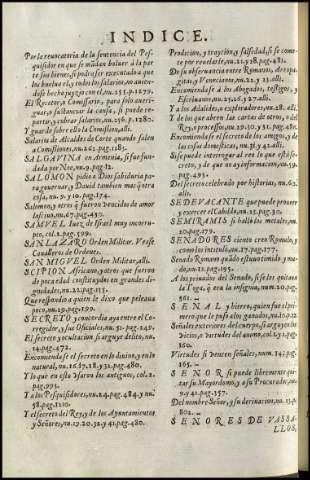 INDICE.
Por la reuocatoria de la sentencia del Pes-
quisidor en que se mãdan boluer à la par
te sus bienes, si podra ser executado a que
los buelua el, y todos los salarios, no auien-
dose hecho payço con el, nu.255.p.1279.
El Retor, ò Comissario, para solo aueri-
guar, y sustanciar la causa, si puede re-
partir, y cobrar salarios, nu.256.p.1280.
Y quando sobre ello ay Comission, alli.
Salario de Alcaldes de Corte quando salen
a Comissiones, nu.262.pag.1285.
SALGAVINA en Armenia, si fue fun-
dada por Noe, nu.9.pag.12.
SALOMON pidio à Dios Sabiduria pa-
ra gouernar, y Dauid tambien mas q̃ otra
cosa, nu.9.y 10.pag.174.
Salomon, y otros q̃ fueron vencidos de amor
lasciuo, nu.67.pag.430.
SAMVEL Iuez, de Israel muy incorru-
pto, col.2.pag.599.
SAN LAZARO Orden Militar. Vease
Caualleros de Ordenes.
SAN MIGVEL Orden Militar, alli.
SCIPION Africano, y otros que fueron
de poca edad constituydos en grandes di-
gnidades, nu.22.pag.113.
Que respondio a quien le dixo que peleaua
poco, nu.29.pag.199.
SECRETO y concordia aya entre el Co-
rregidor, y sus Oficiales, nu.51.pag.249.
El secreto y ocultacion si arguye delito, nu.
14.pag.472.
Encomiendase el secreto en lo diuino, y en lo
natural, nu.16.17.18.y 32.pag.480.
Y lo que en esto vsaron los antiguos, col.2.
pag.993.
Y a los Pesquisidores, nu.24.pag.484.y nu.
58.pag.1210.
Y el secreto del Rey, y de los Ayuntamientos
y Señores, nu.19.20.32.y 41.pag.480.
Prodicion, y trayción, y falsedad, si se come-
te por reuelarle, nu.21.y 28.pag.481.
De su obseruancia entre Romanos, Areopa-
gitas, y Venecianos, nu.22.y 23.alli.
Encomiendase à los Abogados, testigos, y
Escriuanos, 25.26.y 27.alli.
Y a los Adalides, y exploradores, nu.28.alli.
Y de los que abren las cartas de otros, ò del
Rey, ò processos, nu.29.30.y 40.pag.486.
Encomiendase el secreto de los amigos, y de
los casos domesticos, nu.38.y 41.alli.
Si se puede interrogar al reo lo que està se-
creto, y de que no ay informacion, nu.59.
pag.493.
Del secreto celebrado por historias, nu.62.
alli.
SEDE VACANTE que puede proueer
y exercer el Cabildo, nu.25.pag.30.
SEMIRAMIS si hallò los mortales,
nu.20.pag.179.
SENADORES ciento creo Romulo, y
como los instituìò, nu.17.pag.177.
Senado Romano quãdo estuuo tímido y mu-
do, nu.12.pag.195.
A los priuados del Senado, si se les quitaua
la Toga, q̃ era la insignia, nu.10.pag.
501.
SEÑAL y hierro, quien fue el pri-
mero que le puso a los ganados, nu.10.p.12
Señales exteriores del cuerpo, si arguyen los
vicios, y virtudes del animo, col.23.pag.
160.
Virtudes si vencen señales, num.14.pag.
165.
SEÑOR si puede libremente qui-
tar su Mayordomo, y a su Procurador, nu.
9.y 41.pag.357.
Del nombre Señor, y su deriuacion, nu.13.p.
802.
SEÑORES DE VASSA-
LLOS,